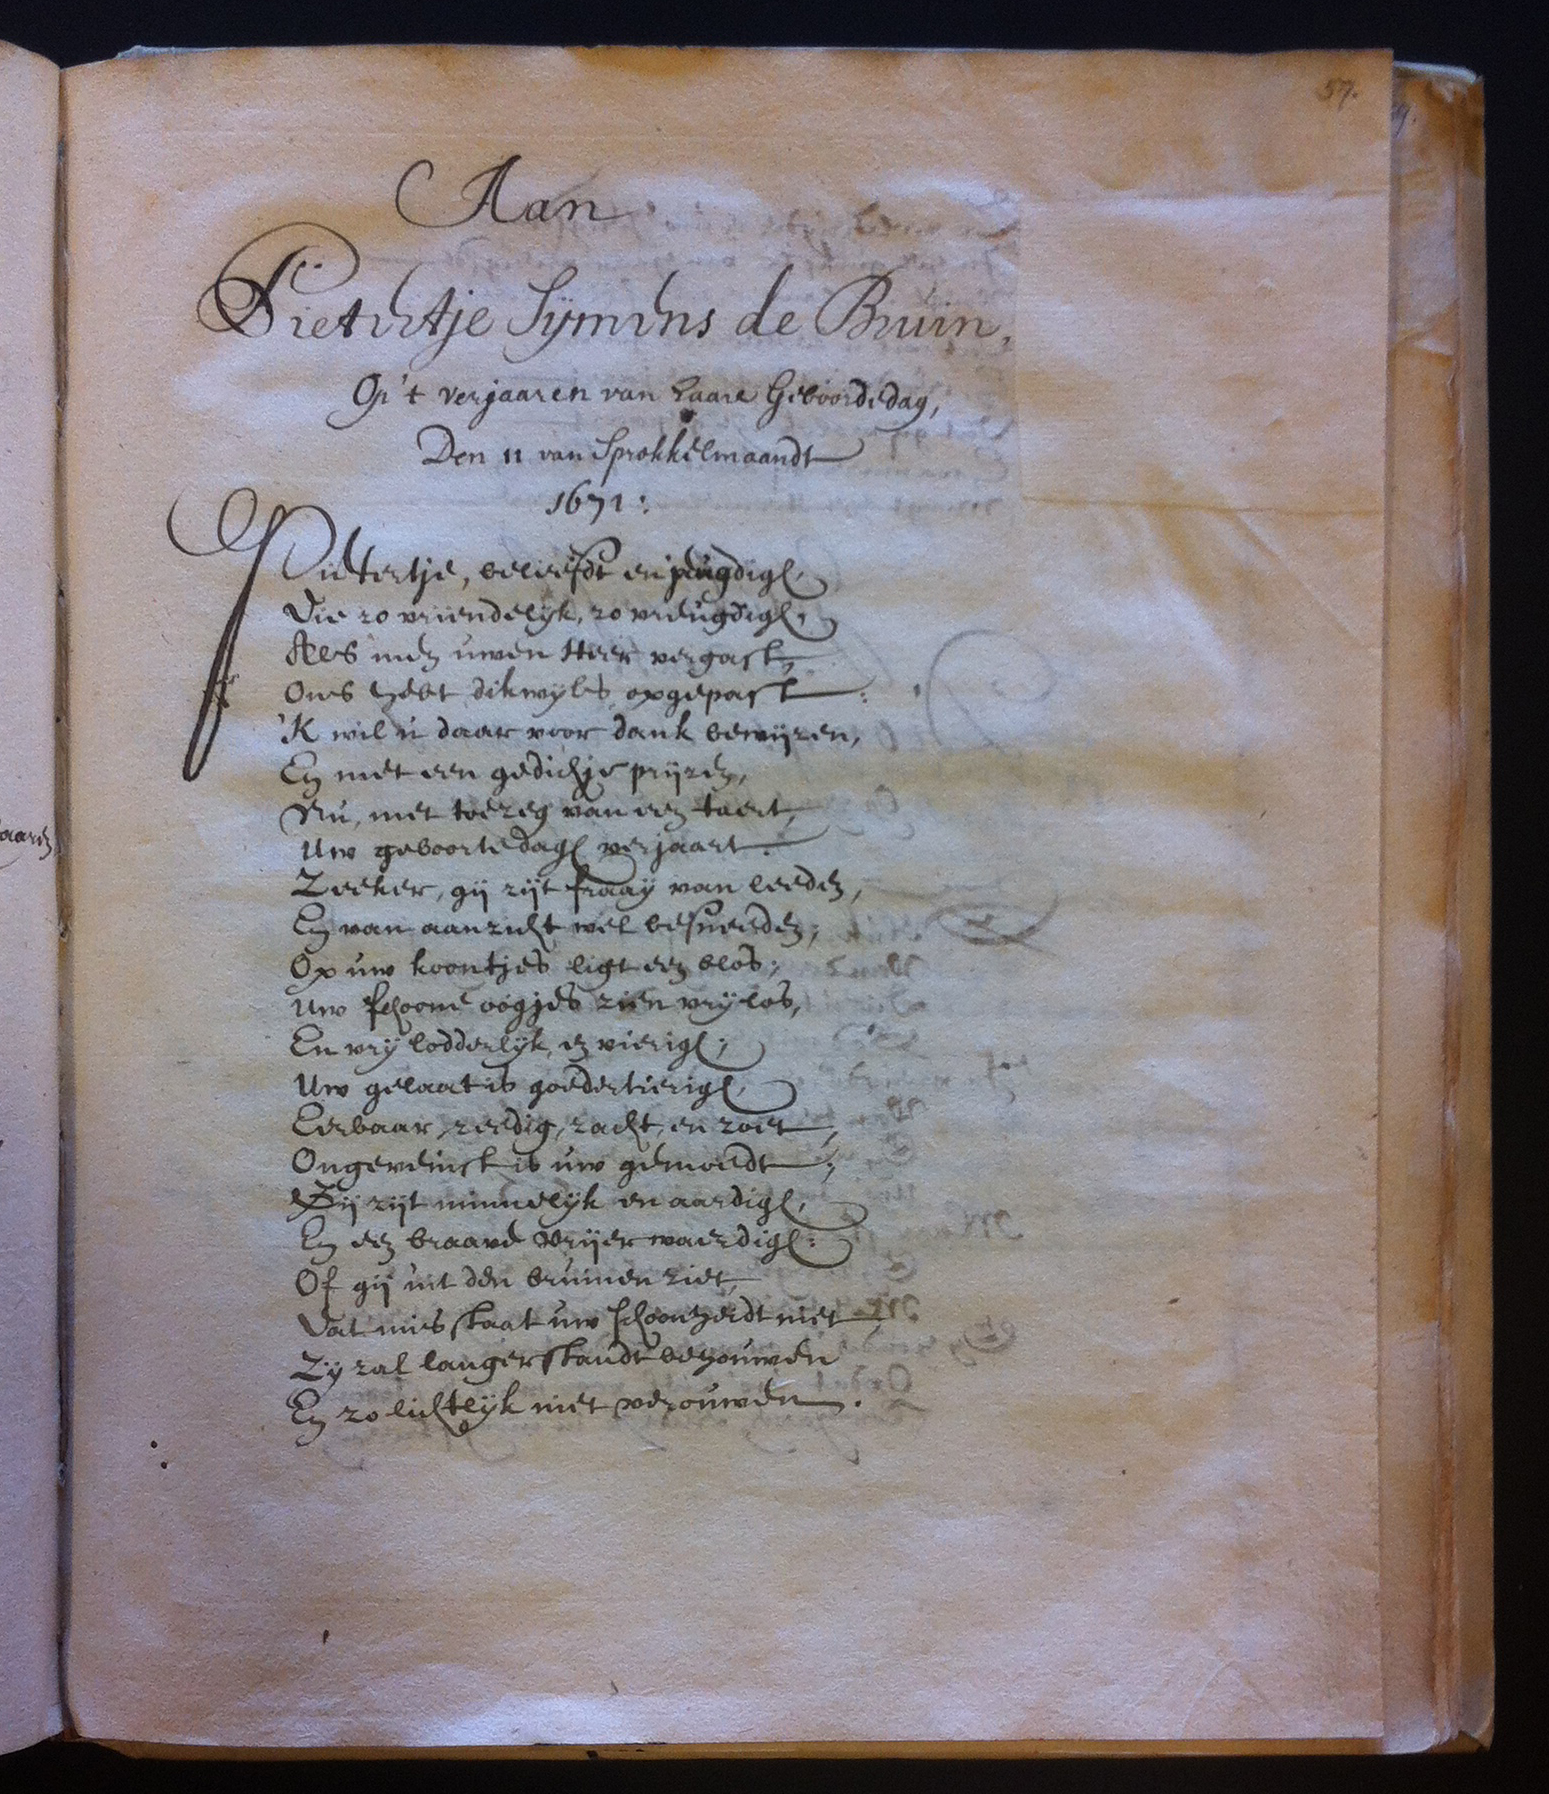 57.
Aan
Pietertje Sÿmens de Bruin,
Op 't verjaaren van haare Geboordedag,
Den 11 van Sprokkelmaandt
1671:
Pietertje, beleefdt en jeugdigh,
Die zo vriendelyk, zo vreugdigh,
Als men uwen Heer vergast,
Ons hebt dikwyls opgepast:
'K wil u daar voor dank bewijzen,
En met een gedichje prijzen,
Nu, met toezeg van een taert,
Uw geboortedagh verjaart.
Zeeker, gij zijt fraay van leeden,
En van aanzicht wel besneeden;
Op uw koontjes ligt een blos;
Uw schoone oogjes zien vry los,
En vry lodderlyk, en vierigh;
Uw gelaat is goedertierigh,
Eerbaar, zeedig, zacht, en zoet,
Ongeveinst is uw gemoedt;
Gij zijt minnelyk en aardigh,
En een braave vrijer waerdigh:
Of gij uit den bruinen ziet,
Dat misstaat uw schoonheidt niet,
Zy zal langer standt behouwen
En zo lichtlyk niet verouwen.
aaren